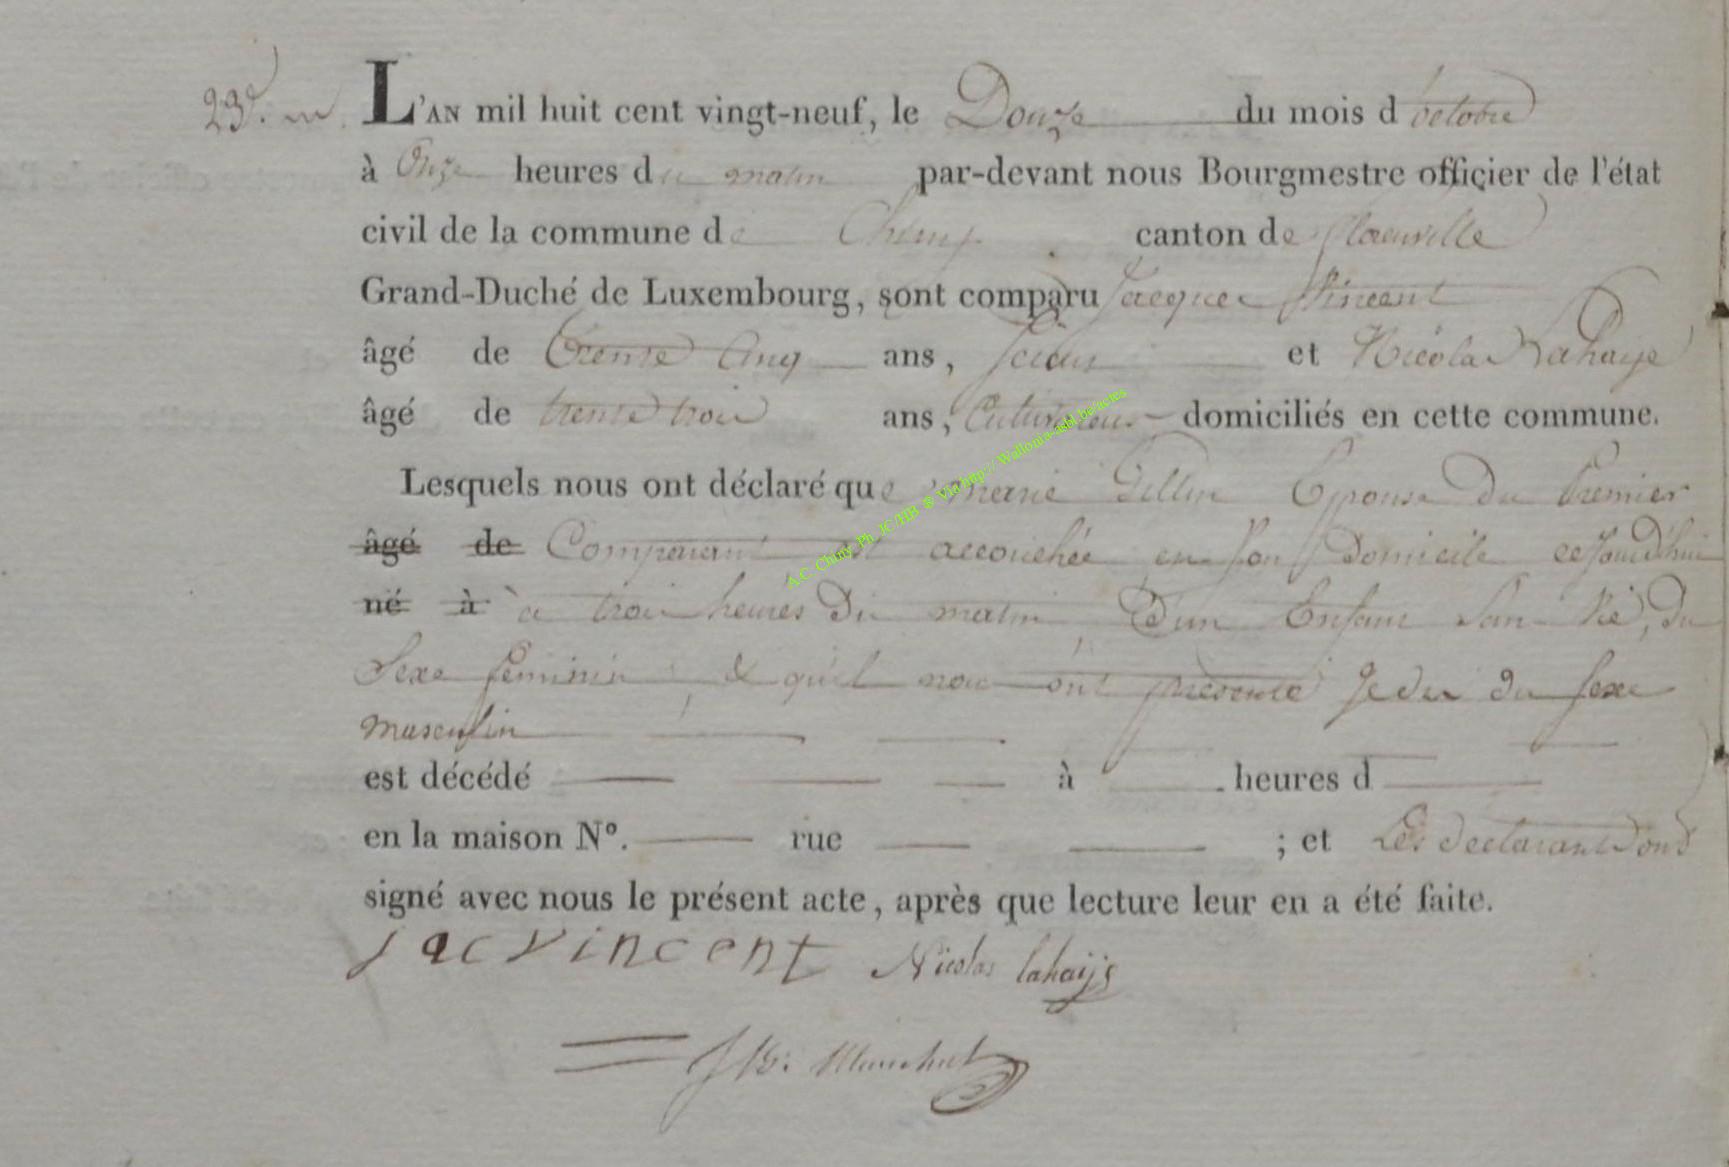 23e. m. L'AN mil huit cent vingt-neuf, le Douze du mois d'octobre
à Onze heures du matin par-devant nous Bourgmestre officier de l'état
civil de la commune de Chiny canton de florenville
Grand-Duché de Luxembourg, sont comparu Jacques Vincent
âgé de trente Cinq ans, Scieur et Nicolas Lahaye
âgé de trente trois ans, Cultivateur domiciliés en cette commune.
Lesquels nous ont déclaré que marie Gillin Epouse du Premier
âgé de Comparant est accouchée en Son Domicile cejourd'hui
né à à trois heures Du matin, D'un Enfant Sans Vie, du
Sexe feminin, & qu'il nous ont présenté Je dis du Sexe
masculin
est décédé à heures d
en la maison N°. rue ; et Les declarants ont
signé avec nous le présent acte, après que lecture leur en a été faite.
Jac Vincent Nicolas lahaije
A.C. Chiny Ph. JC/HB ® Via http:// Wallonia-asbl.be/actes